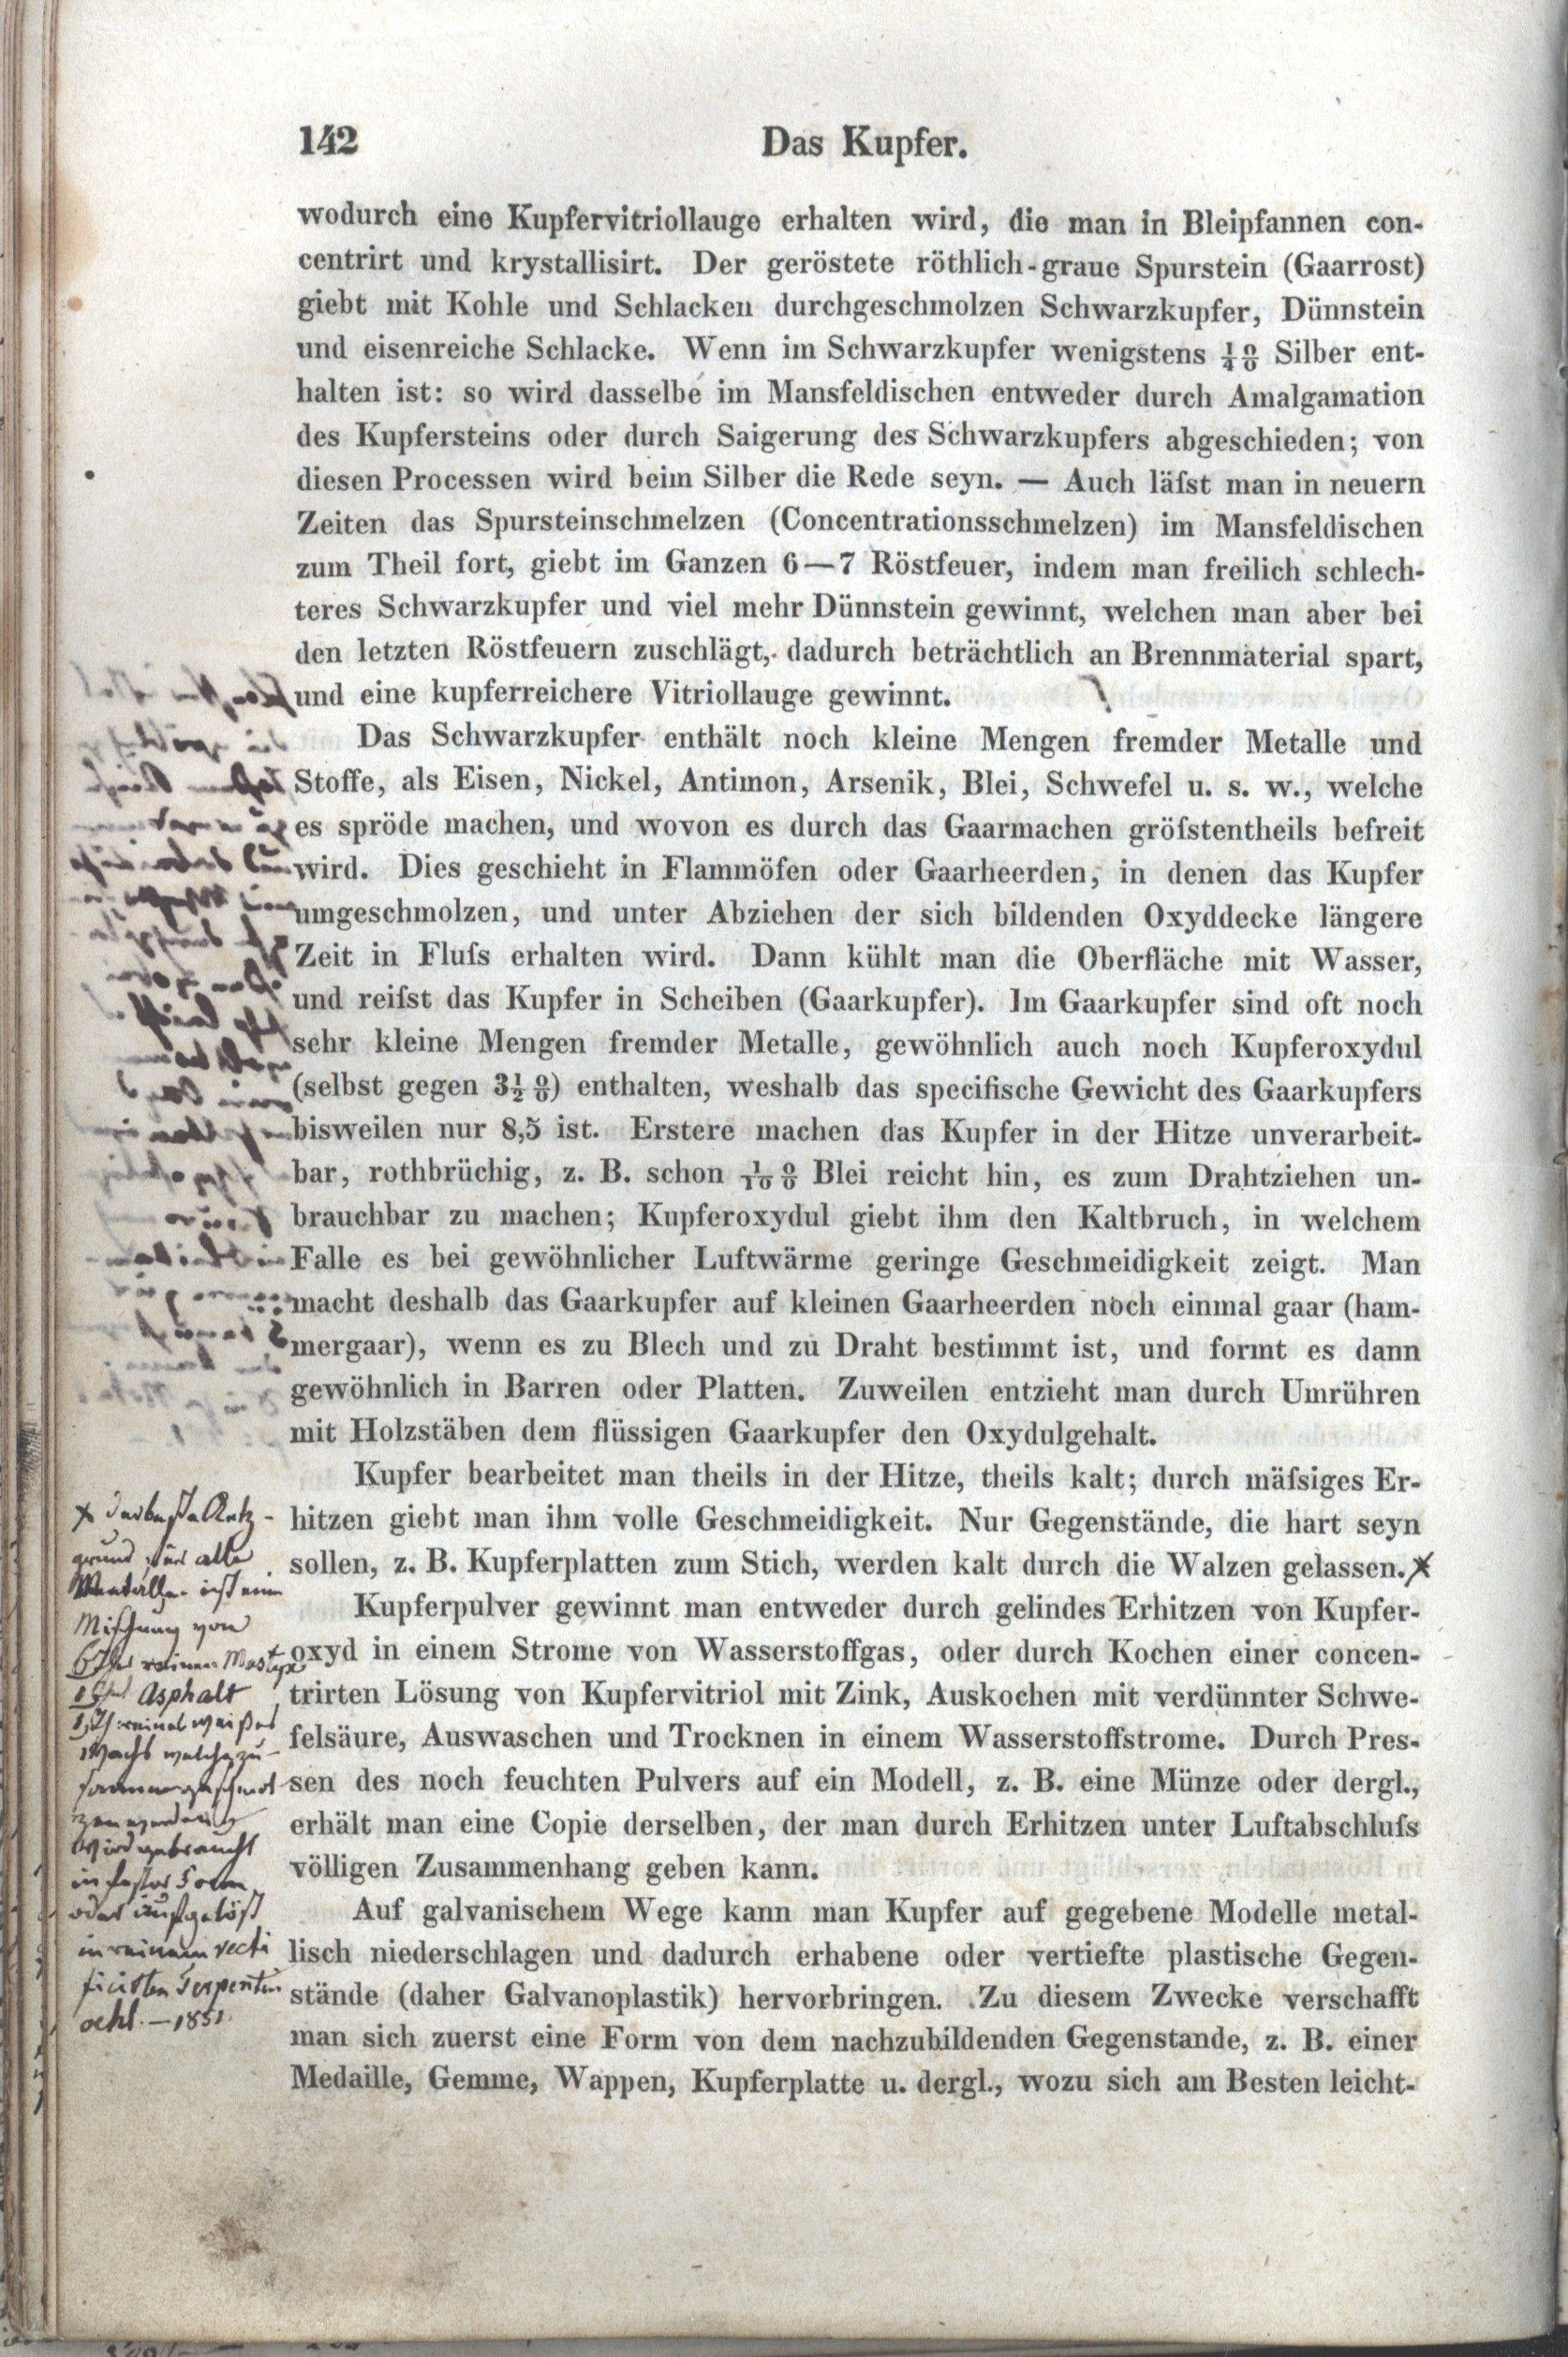 142
Das Kupfer.
wodurch eine Kupfervitriollauge erhalten wird, die man in Bleipfannen con-
centrirt und krystallisirt. Der geröstete röthlich-graue Spurstein (Gaarrost)
giebt mit Kohle und Schlacken durchgeschmolzen Schwarzkupfer, Dünnstein
und eisenreiche Schlacke. Wenn im Schwarzkupfer wenigstens ¼ % Silber ent-
halten ist: so wird dasselbe im Mansfeldischen entweder durch Amalgamation
des Kupfersteins oder durch Saigerung des Schwarzkupfers abgeschieden; von
diesen Processen wird beim Silber die Rede seyn. — Auch läfst man in neuern
Zeiten das Spursteinschmelzen (Concentrationsschmelzen) im Mansfeldischen
zum Theil fort, giebt im Ganzen 6—7 Röstfeuer, indem man freilich schlech-
teres Schwarzkupfer und viel mehr Dünnstein gewinnt, welchen man aber bei
den letzten Röstfeuern zuschlägt, dadurch beträchtlich an Brennmaterial spart,
und eine kupferreichere Vitriollauge gewinnt.
Das Schwarzkupfer enthält noch kleine Mengen fremder Metalle und
Stoffe, als Eisen, Nickel, Antimon, Arsenik, Blei, Schwefel u. s. w., welche
es spröde machen, und wovon es durch das Gaarmachen gröfstentheils befreit
wird. Dies geschieht in Flammöfen oder Gaarheerden, in denen das Kupfer
umgeschmolzen, und unter Abziehen der sich bildenden Oxyddecke längere
Zeit in Flufs erhalten wird. Dann kühlt man die Oberfläche mit Wasser,
und reifst das Kupfer in Scheiben (Gaarkupfer). Im Gaarkupfer sind oft noch
sehr kleine Mengen fremder Metalle, gewöhnlich auch noch Kupferoxydul
(selbst gegen 3½ %) enthalten, weshalb das specifische Gewicht des Gaarkupfers
bisweilen nur 8,5 ist. Erstere machen das Kupfer in der Hitze unverarbeit-
bar, rothbrüchig, z. B. schon 1/10 % Blei reicht hin, es zum Drahtziehen un-
brauchbar zu machen; Kupferoxydul giebt ihm den Kaltbruch, in welchem
Falle es bei gewöhnlicher Luftwärme geringe Geschmeidigkeit zeigt. Man
macht deshalb das Gaarkupfer auf kleinen Gaarheerden noch einmal gaar (ham-
mergaar), wenn es zu Blech und zu Draht bestimmt ist, und formt es dann
gewöhnlich in Barren oder Platten. Zuweilen entzieht man durch Umrühren
mit Holzstäben dem flüssigen Gaarkupfer den Oxydulgehalt.
Kupfer bearbeitet man theils in der Hitze, theils kalt; durch mäfsiges Er-
hitzen giebt man ihm volle Geschmeidigkeit. Nur Gegenstände, die hart seyn
sollen, z. B. Kupferplatten zum Stich, werden kalt durch die Walzen gelassen. x
Kupferpulver gewinnt man entweder durch gelindes Erhitzen von Kupfer-
oxyd in einem Strome von Wasserstoffgas, oder durch Kochen einer concen-
trirten Lösung von Kupfervitriol mit Zink, Auskochen mit verdünnter Schwe-
felsäure, Auswaschen und Trocknen in einem Wasserstoffstrome. Durch Pres-
sen des noch feuchten Pulvers auf ein Modell, z. B. eine Münze oder dergl.,
erhält man eine Copie derselben, der man durch Erhitzen unter Luftabschlufs
völligen Zusammenhang geben kann.
Auf galvanischem Wege kann man Kupfer auf gegebene Modelle metal-
lisch niederschlagen und dadurch erhabene oder vertiefte plastische Gegen-
stände (daher Galvanoplastik) hervorbringen. Zu diesem Zwecke verschafft
man sich zuerst eine Form von dem nachzubildenden Gegenstande, z. B. einer
Medaille, Gemme, Wappen, Kupferplatte u. dergl., wozu sich am Besten leicht-
x der beste Aetz-
grund für alle
Metalle ist eine
Mischung von
6 Thl reinen Mastyx
1 Thl Asphalt
1 Th reines weißes
Wachs welche zu-
sammengeschmol
zen werden
Wird gebraucht
in fester Form
oder aufgelöst
in reinem recti
ficirten Terpentin
oehl. — 1851.